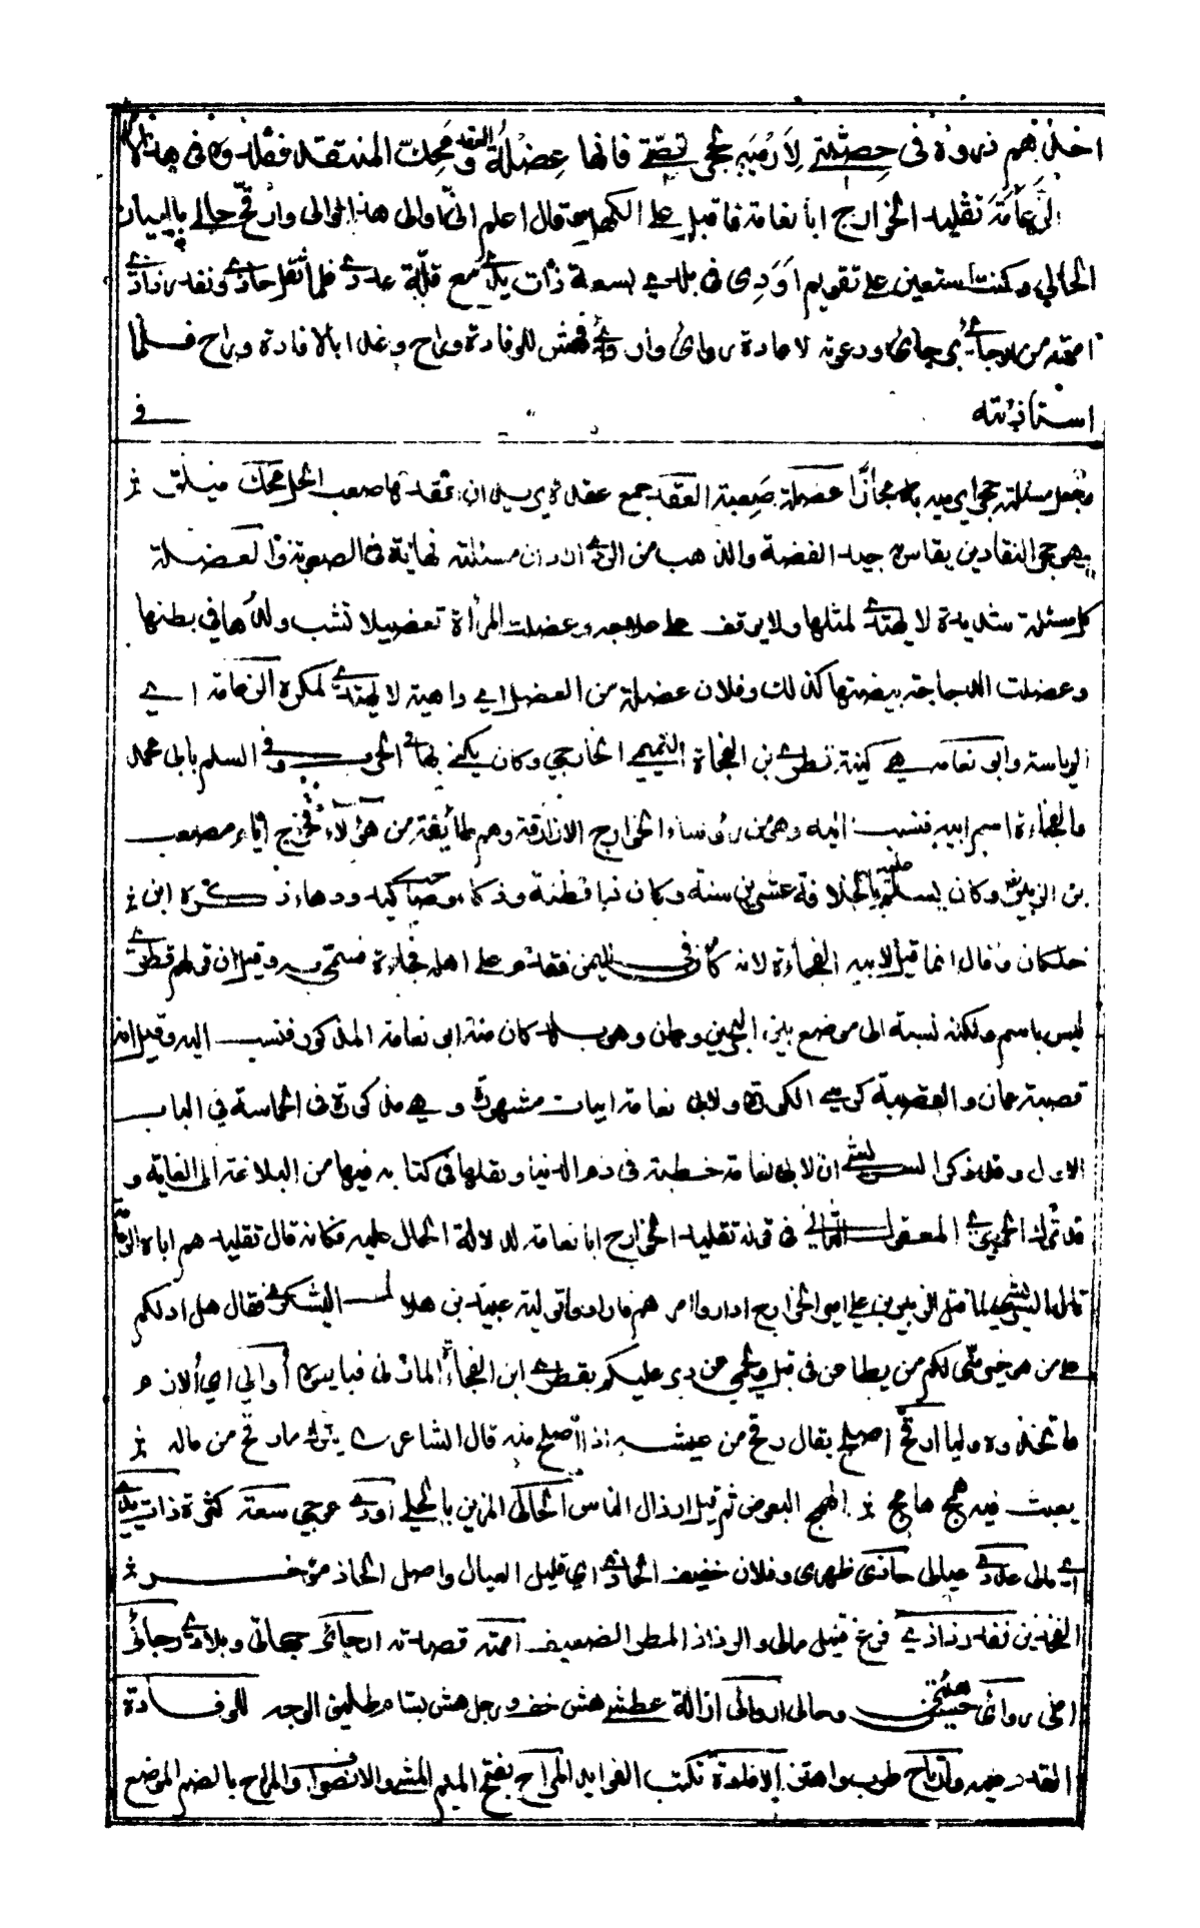 اخلى بهم ذروه في حصتي لأرميه بحجر قصتي فانها عضلة العقد ومحك المنتقد فقلدوه في هذا الامر
الزعامة تقليد الخوارج ابا نعامة فاقبل على الكهل وقال اعلم اني اوالي هذا الوالي وارقح حالي بالبيان
الحالي وكنت استعين على تقويم اودي في بلدي بسعة ذات يدي مع قلة عددي فلما ثقل حاذي ونفد رذاذي
اممته من ارجائي برجائي ودعوته لاعادة روائي واروائي فهش للوفادة وراح وغدا بالافادة وراح فلما
استاذنته في
عضلة صعبة العقد جمع عقدة اي يريد ان عقدتها صعب الحل محك
حجر النقادين يقاس جيد الفضة والذهب من الردي اراد ان مسئلته نهاية في الصعوبة والعضلة
كل مسئلة شديدة لا يهتدى لمثلها ولا يوقف على علاجه وعضلت المرأة تعضيلا نشب ولدها في بطنها
وعضلت الدجاجة ببيضتها كذلك وفلان عضلة من العضل اي داهية لا يهتدى لمكره الزعامة اي
الرياسة وابو نعامه هي كنية قطري بن الفجاة التميمي الخارجي وكان يكنى بها في الحرب وفي السلم بابي محمد
والفجاءة اسم ابيه فنسب اليه وهو من رؤساء الخوارج الازارقة وهم طائفة من هؤلاء فخرج ايام مصعب
بن الزبير وكان يسلم عليه بالخلافة عشرين سنة وكان ذا فطنة وذكاء وصاحب كيد ودهاء ذكره ابن
خلكان وقال انما قيل لابيه الفجاءة لانه كان في اليمن فقدم على اهله فجاءة فسمي به وقيل ان قولهم قطري
ليس باسم ولكنه نسبة الى موضع بين البحرين وعمان وهو بلد كان منه ابو نعامة المذكور فنسب اليه وقيل انه
قصبة عمان والقصبة كرسي الكورة ولابي نعامة ابيات مشهورة وهي مذكورة في الحماسة في الباب
الاول وقد ذكر الشريشي ان لابي نعامة خطبة في ذم الدنيا ونقلها في كتابه فيها من البلاغة الى الغاية و
قد ترك الحريري المفعول الثاني في قوله تقليد الخوارج ابا نعامة لدلالة الحال عليه فكانه قال تقليدهم اباه الزعامة
قال الشريشي لما قتل الزبير بن علي امير الخوارج اداروا امرهم فارادوا تولية عبيدة بن هلال اليشكري فقال هل ادلكم
على من هو خير مني لكم من يطاعن في قبل ويحمي عن دبر عليكم بقطري ابن الفجاءة المازني فبايعوه أوالي اي ألازم
ما تخذوه وليا ارقح اصلح يقال رقح من عيشه اذا اصلح منه قال الشاعر يترك مارقح من ماله
يعيث فيه همج هامج الهمج البعوض ثم قيل ارذال الناس الحالي المزين بالحلي اودي عوجي سعة كثرة ذات يدي
اي مالي عددي عيالي حاذي ظهري وفلان خفيف الحاذ اي قليل العيال واصل الحاذ مؤخر
الفخذين نفد رذاذي فرغ قليل مالي والرذاذ المطر الضعيف اممته قصدته ارجائي جهاتي وبلادي رجائي
املي روائي حسن هيئتي وحالي اروائي ازالة عطشي هش خف ورجل هش بشاش طليق الوجه للوفادة
القدوم وارتاح طرب واهتز الافادة تكتب الفوايد المراح بفتح الميم والمراح بالضم الموضع